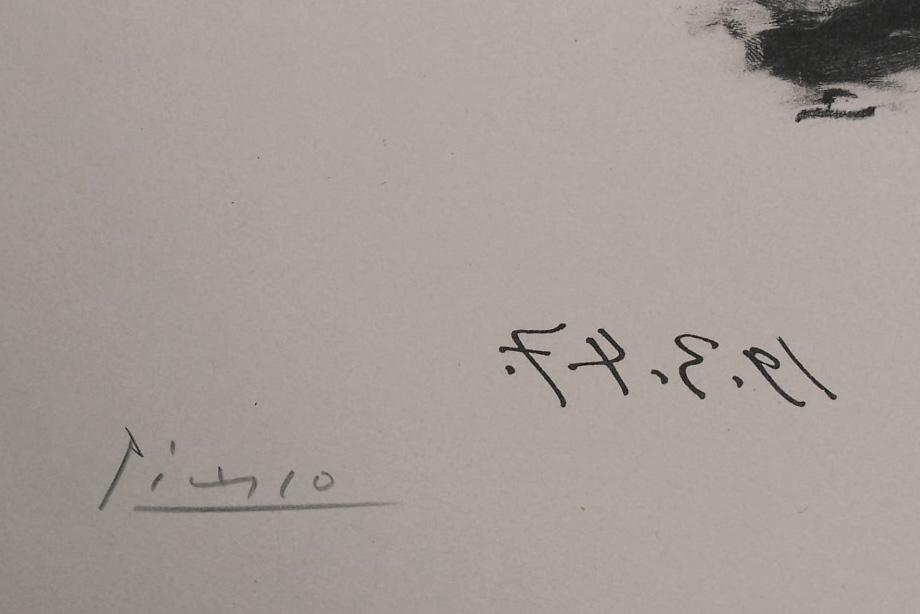 19.3.47.
Picasso